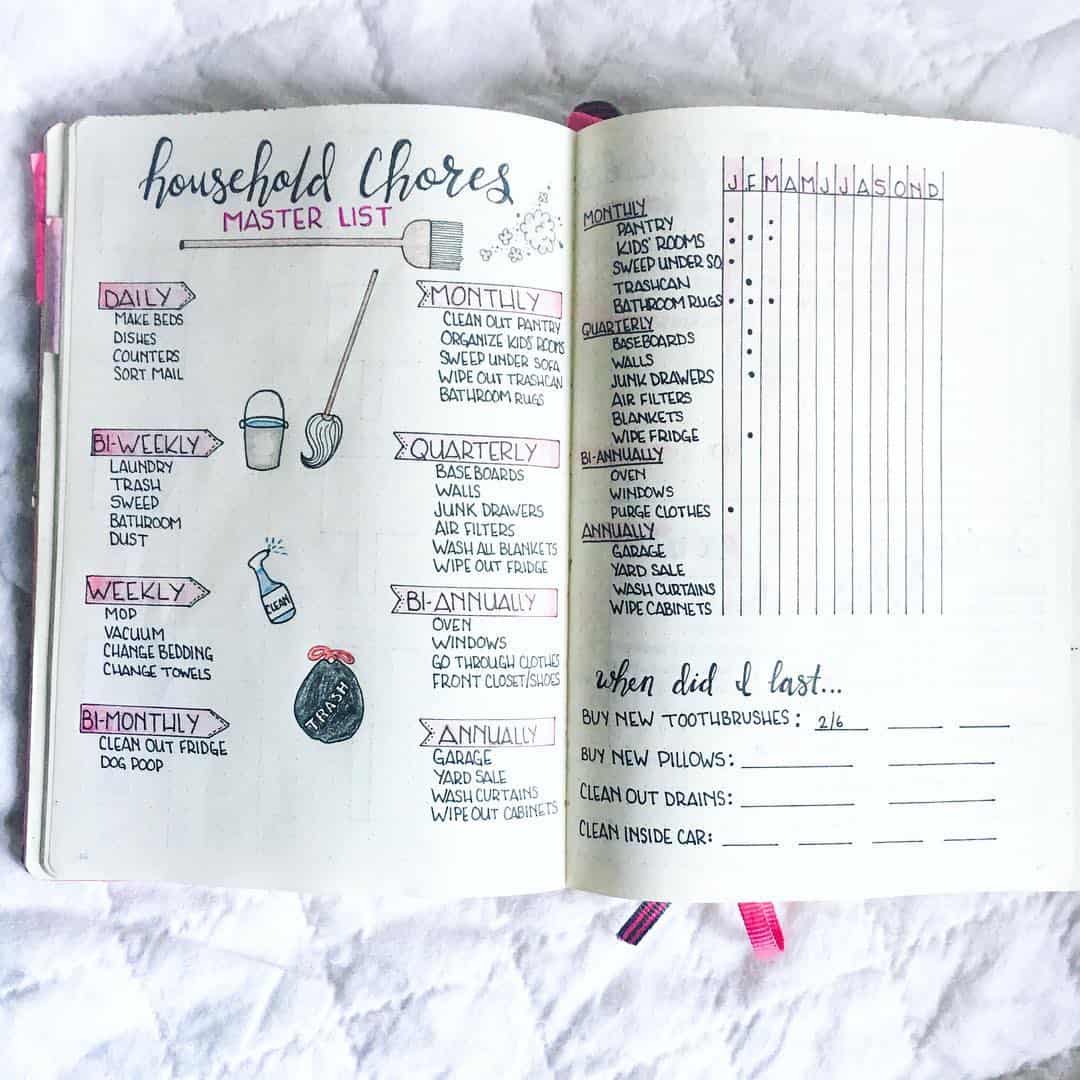 household Chores
MASTER LIST
DAILY
MAKE BEDS
DISHES
COUNTERS
SORT MAIL
BI-WEEKLY
LAUNDRY
TRASH
SWEEP
BATHROOM
DUST
WEEKLY
MOP
VACUUM
CHANGE BEDDING
CHANGE TOWELS
BI-MONTHLY
CLEAN OUT FRIDGE
DOG POOP
CLEAN
TRASH
MONTHLY
CLEAN OUT PANTRY
ORGANIZE KIDS' ROOMS
SWEEP UNDER SOFA
WIPE OUT TRASHCAN
BATHROOM RUGS
QUARTERLY
BASEBOARDS
WALLS
JUNK DRAWERS
AIR FILTERS
WASH ALL BLANKETS
WIPE OUT FRIDGE
BI-ANNUALLY
OVEN
WINDOWS
GO THROUGH CLOTHES
FRONT CLOSET/SHOES
ANNUALLY
GARAGE
YARD SALE
WASH CURTAINS
WIPE OUT CABINETS
J F M A M J J A S O N D
MONTHLY
PANTRY
KIDS' ROOMS
SWEEP UNDER SO
TRASHCAN
BATHROOM RUGS
QUARTERLY
BASEBOARDS
WALLS
JUNK DRAWERS
AIR FILTERS
BLANKETS
WIPE FRIDGE
BI-ANNUALLY
OVEN
WINDOWS
PURGE CLOTHES
ANNUALLY
GARAGE
YARD SALE
WASH CURTAINS
WIPE CABINETS
when did I last...
BUY NEW TOOTHBRUSHES: 2/6
BUY NEW PILLOWS:
CLEAN OUT DRAINS:
CLEAN INSIDE CAR: